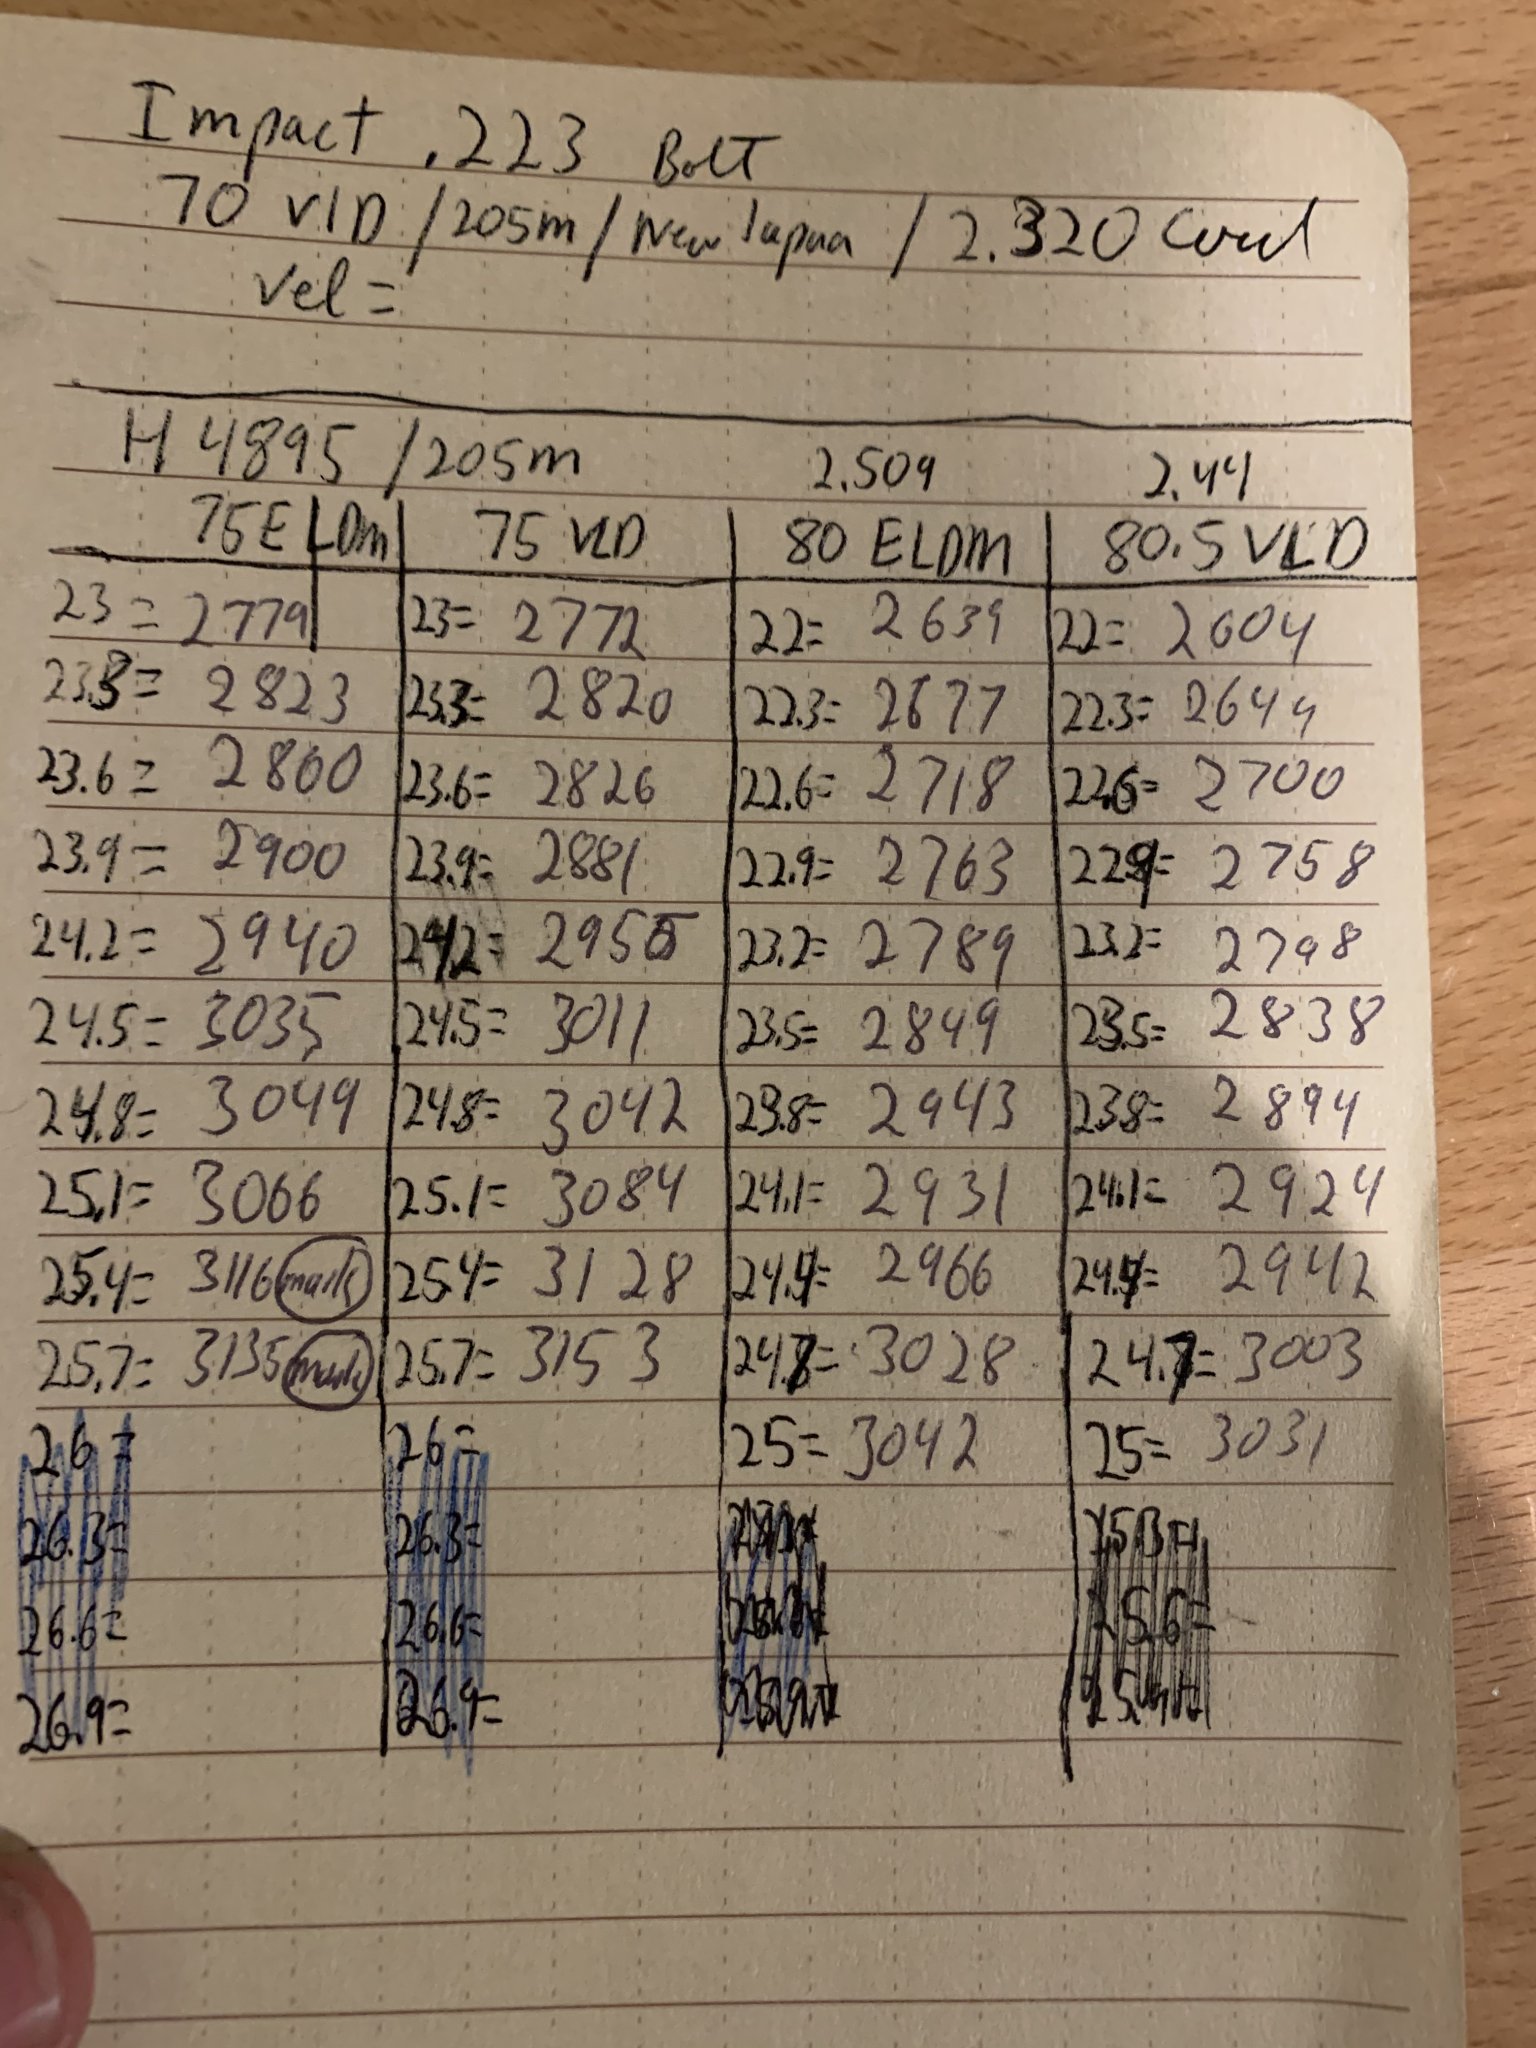 Impact .223 Bolt
70 VLD / 205m / New lapua / 2.320
Vel =
H 4895 / 205m 2.509 2.44
75 ELDm 75 VLD 80 ELDM 80.5 VLD
23 = 2779 23= 2772 22= 2639 22= 2604
23.3= 2823 23.3= 2820 22.3= 2677 22.3= 2644
23.6 = 2860 23.6= 2826 22.6= 2718 22.6= 2700
23.9 = 2900 23.9= 2881 22.9= 2763 22.9= 2758
24.2= 2940 24.2= 2955 23.2= 2789 23.2= 2798
24.5= 3035 24.5= 3011 23.5= 2849 23.5= 2838
24.8= 3049 24.8= 3042 23.8= 2943 23.8= 2894
25.1= 3066 25.1= 3084 24.1= 2931 24.1= 2924
25.4= 3116 mark 25.4= 3128 24.4= 2966 24.4= 2942
25.7= 3135 mark 25.7= 3153 24.7= 3028 24.7= 3003
26 = 26 = 25= 3042 25= 3031
26.3= 26.3= 25.3=
26.6= 26.6= 25.6=
26.9= 26.9= 25.9=